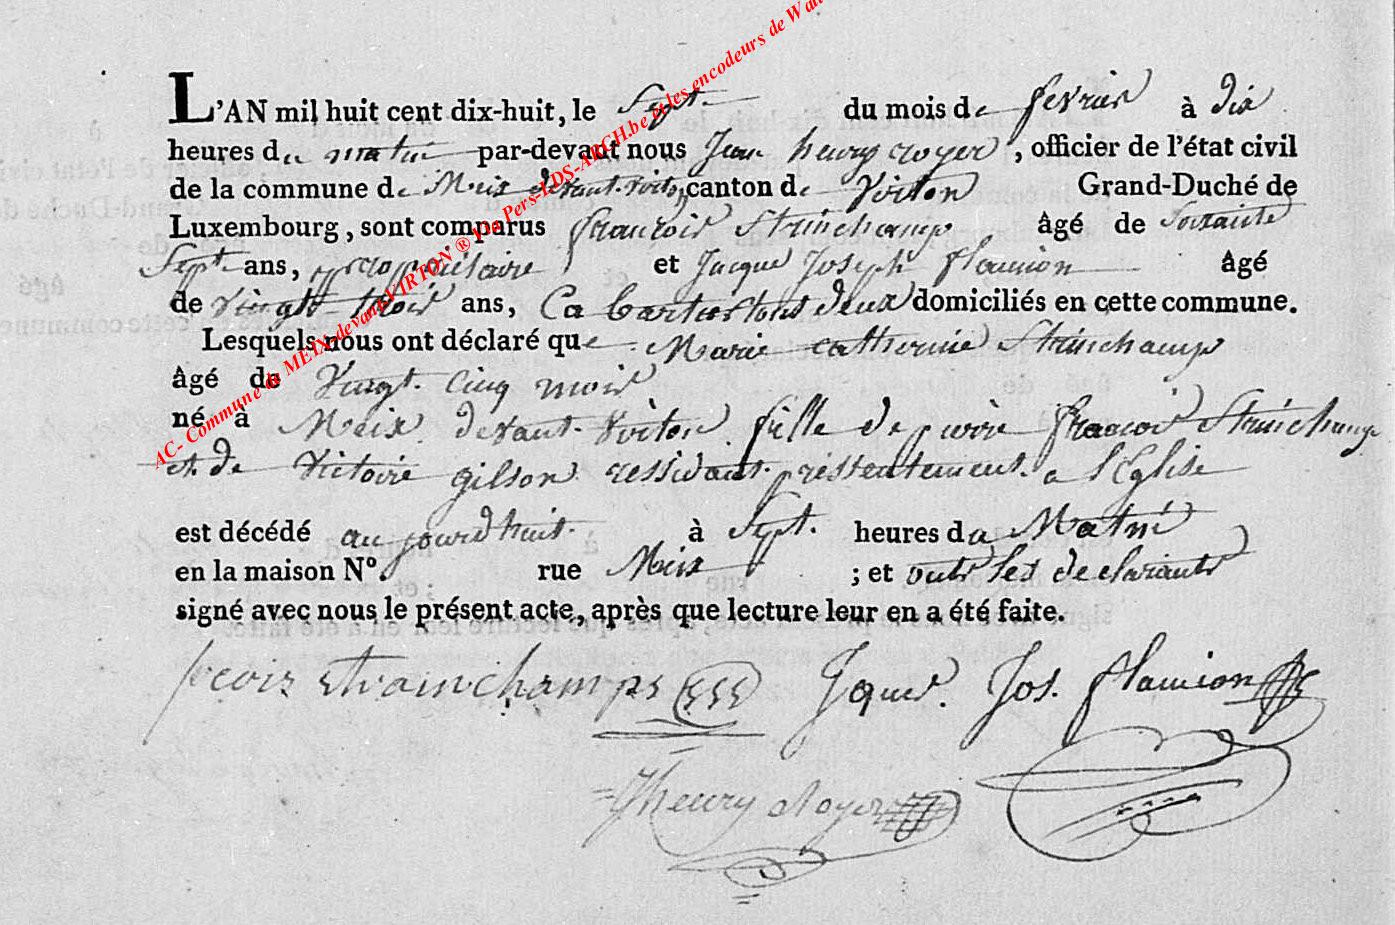 L'AN mil huit cent dix-huit, le Sept du mois de fevrier à dix
heures du matin par-devant nous Jean henry royer, officier de l'état civil
de la commune de Meix devant virton canton de Virton Grand-Duché de
Luxembourg, sont comparus francois Strinchamps âgé de Soixante
Sept ans, propriétaire et Jacque Joseph flamion âgé
de vingt trois ans, Cabartier tous deux domiciliés en cette commune.
Lesquels nous ont déclaré que Marie catherine Strinchamps
âgé de Vingt cinq mois
né à Meix devant Virton fille de pierre francois Strinchamps
et de Victoire gilson ressidant pressentement a l'Eglise
est décédé aujourdhuit à Sept heures du Matin
en la maison N° rue Meix ; et les declarants
signé avec nous le présent acte, après que lecture leur en a été faite.
frcois strainchamps Jques Jos. flamion
Jhenry Royer
AC- Commune de MEIX-devant-VIRTON ® Via Pers-LDS-ARCH.be et les encodeurs de